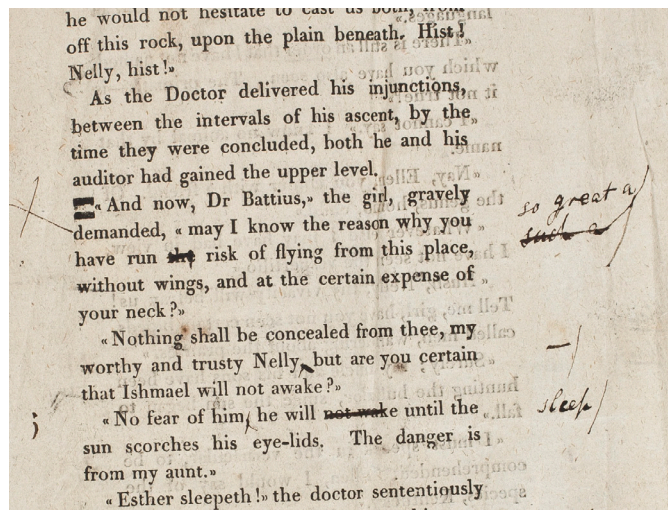 he would not hesitate to cast us both, from
off this rock, upon the plain beneath. Hist!
Nelly, hist!»
As the Doctor delivered his injunctions,
between the intervals of his ascent, by the
time they were concluded, both he and his
auditor had gained the upper level.
«And now, Dr Battius,» the girl, gravely
demanded, «may I know the reason why you
so great a
have run the risk of flying from this place,
such a
without wings, and at the certain expense of
your neck?»
«Nothing shall be concealed from thee, my
worthy and trusty Nelly, but are you certain
—/
that Ishmael will not awake?»
«No fear of him, he will not wake until the
sleep/
;
sun scorches his eye-lids. The danger is
from my aunt.»
«Esther sleepeth!» the doctor sententiously